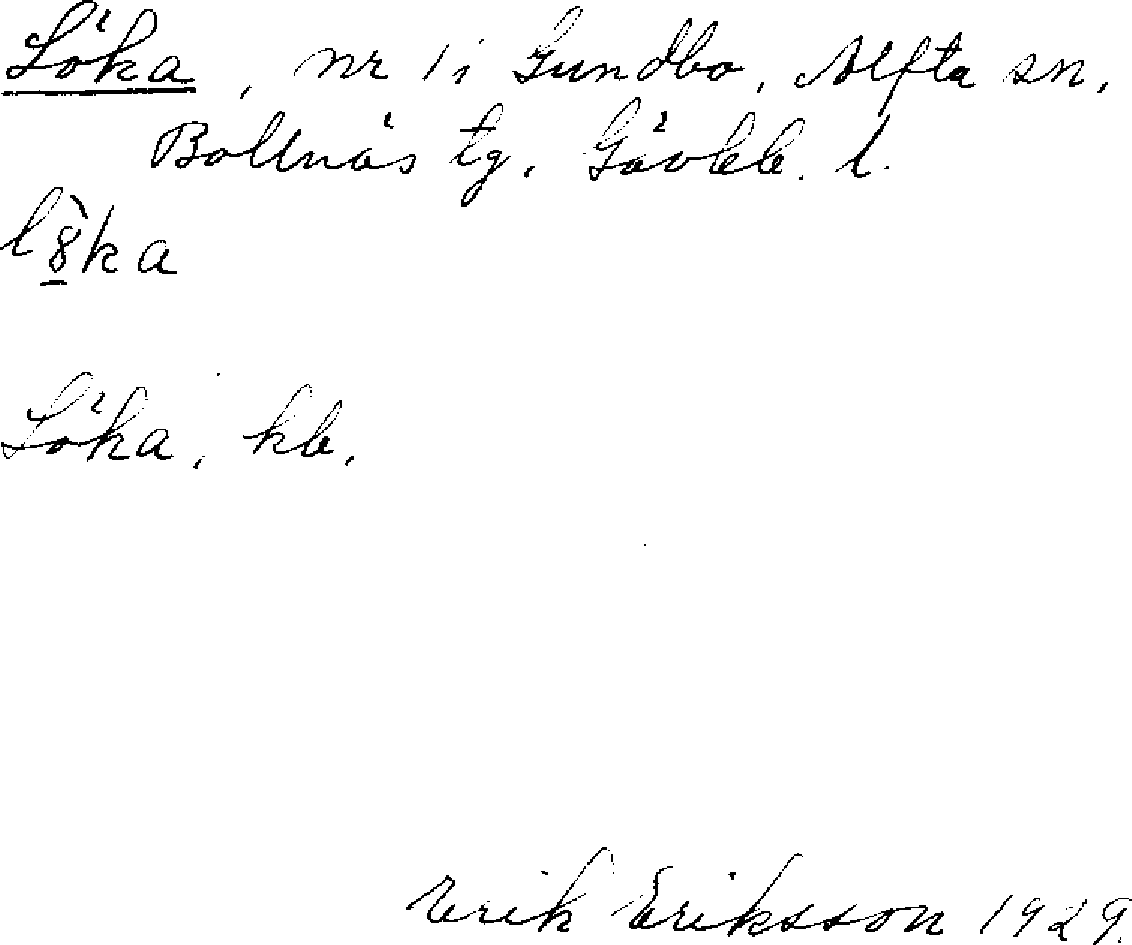 Löka, nr 1 i Gundbo, Alfta sn,
Bollnäs tg, Gävleb. l.
Löka, kb,
Erik Eriksson 1929.